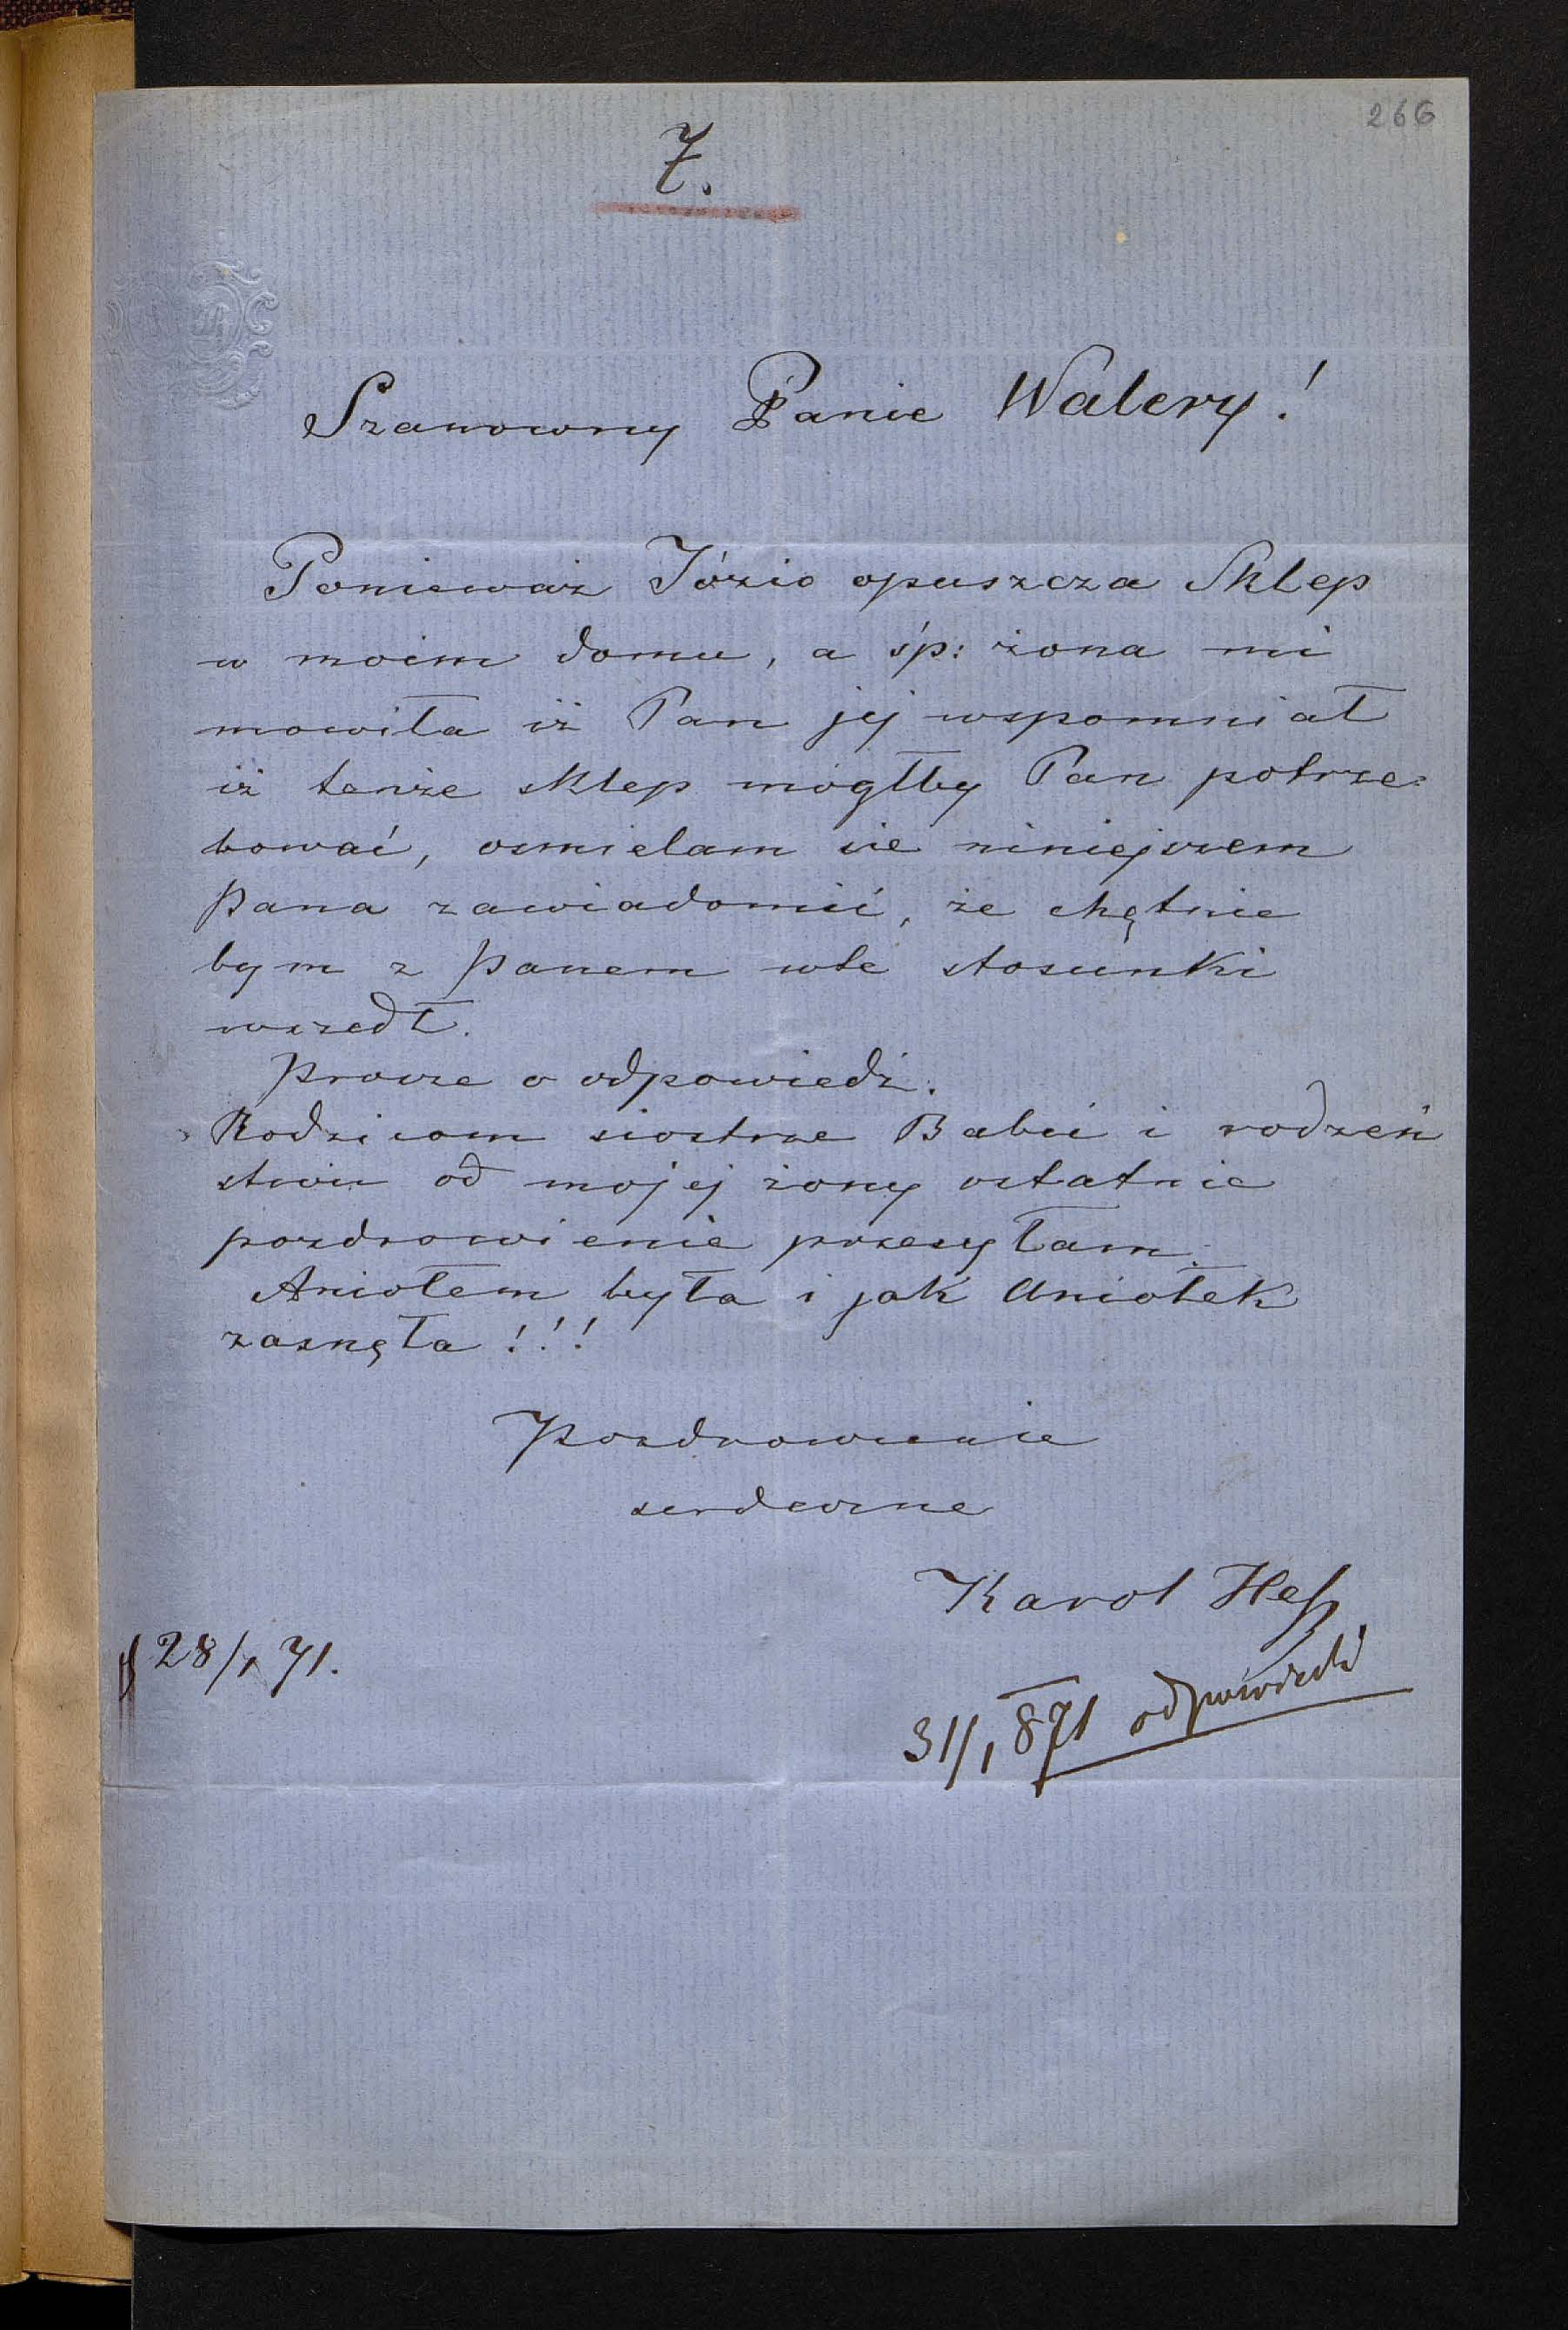 266
7.
Szanowny Panie Walery!
Ponieważ Józio opuszcza Sklep
w moim domu, a śp: żona mi
mowiła iż Pan jej wspomniał
iż tenże sklep mógłby Pan potrze-
bować, osmielam sie niniejszem
Pana zawiadomić, że chętnie
bym z Panem wte stosunki
wszedł.
Prosze o odpowiedź.
Rodzicom siostrze Babci i rodzeń
stwu od mojej żony ostatnie
pozdrowienie przesyłam.
Aniołem była i jak Aniołek
zasnęła!!!
Pozdrowienie
serdeczne
Karol Heß
28/1 71.
31/1 871 odpowiedź